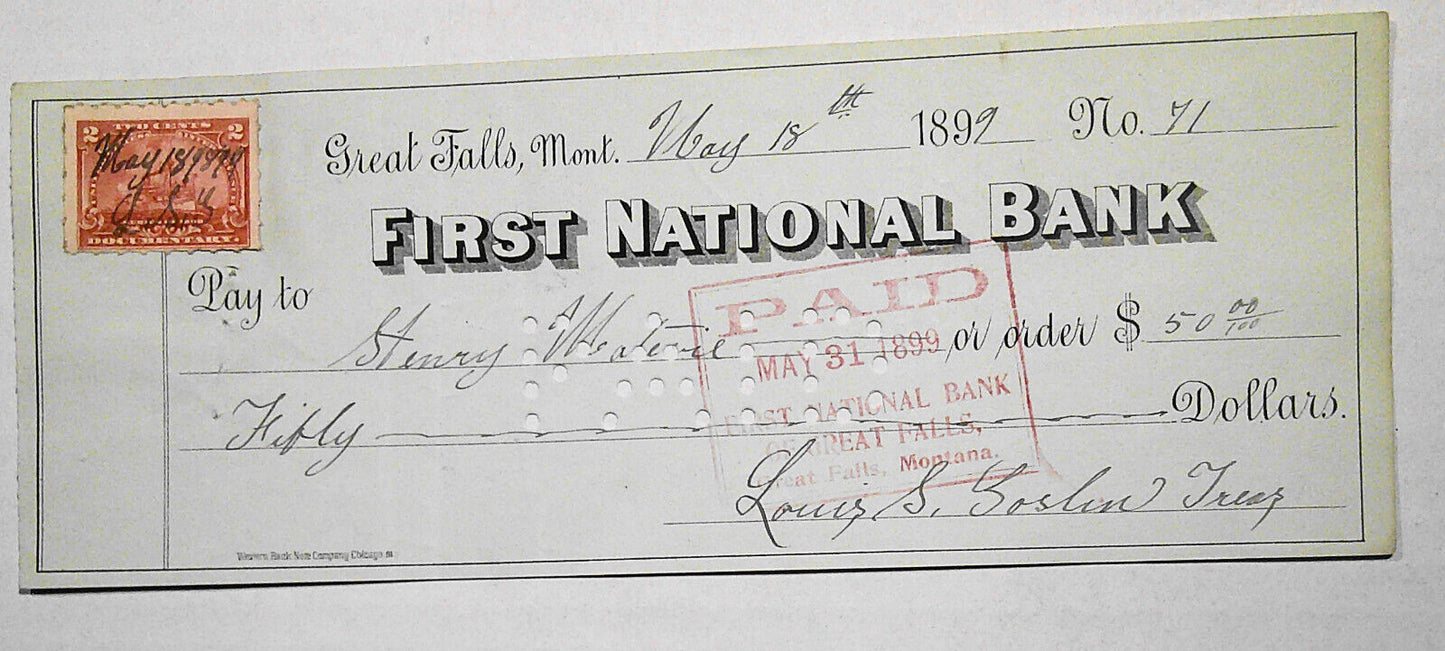 TWO CENTS
2 2
May 18 1899
DOCUMENTARY.
Great Falls, Mont. May 18th 1899 No. 71
FIRST NATIONAL BANK
Pay to
Henry or order $ 50 00/100
Fifty Dollars.
PAID
MAY 31 1899
FIRST NATIONAL BANK
OF GREAT FALLS,
Great Falls, Montana.
Louis S. Goslin Treas
Western Bank Note Company Chicago